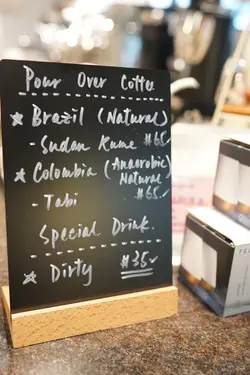 Pour Over Coffee
★ Brazil (Natural)
- Sudan Rume #65
★ Colombia (Anaerobic
Natural
- Tabi #65✓
Special Drink.
★ Dirty #35✓